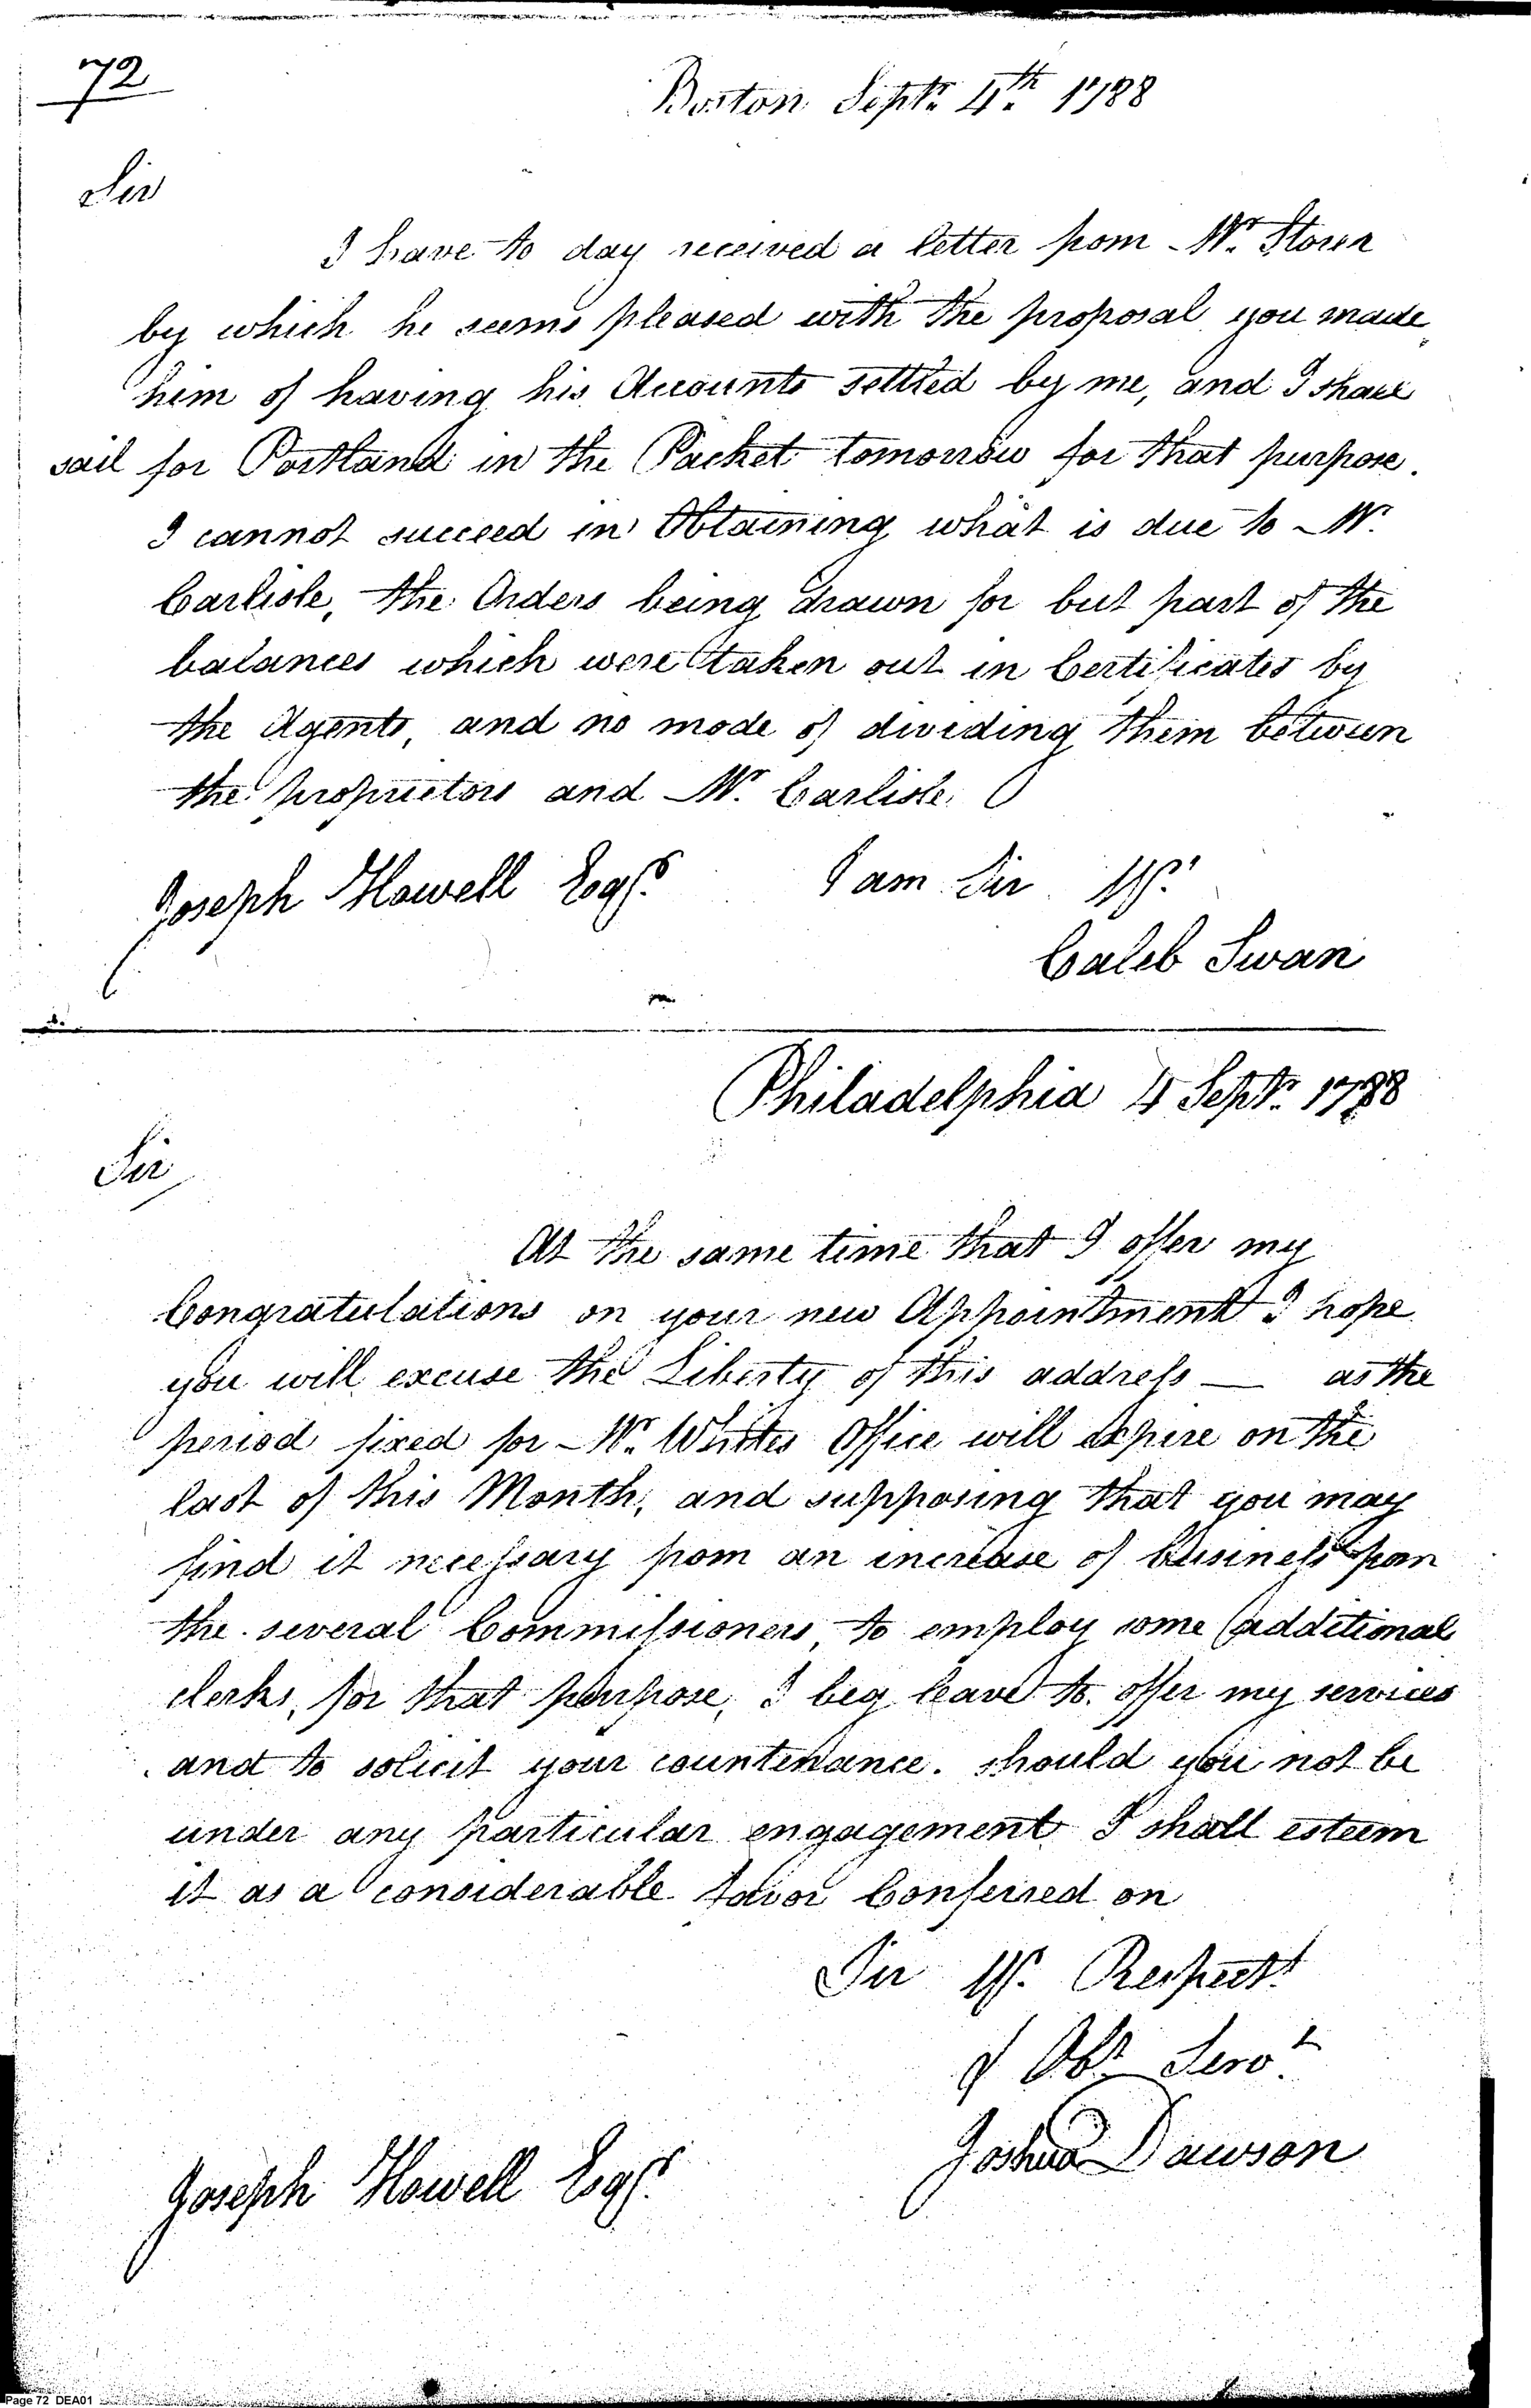 72
Boston Septr. 4th. 1788
Sir
I have to day received a letter from Mr. Storer
by which he seems pleased with the proposal you made
him of having his Accounts settled by me, and I shall
sail for Portland in the Packet tomorrow for that purpose.
I cannot succeed in Obtaining what is due to Mr.
Carlisle, the Orders being drawn for but part of the
balances which were taken out in Certificates by
the Agents, and no mode of dividing them between
the proprietors and Mr. Carlisle.
Joseph Howell Esqr. I am Sir
Caleb Swan
Philadelphia 4 Septr. 1788
Sir
At the same time that I offer my
Congratulations on your new Appointment I hope
you will excuse the Liberty of this address — as the
period fixed for Mr. Whites Office will expire on the
last of this Month, and supposing that you may
find it necessary from an increase of business from
the several Commissioners, to employ some additional
clerks, for that purpose, I beg leave to offer my services
and to solicit your countenance. should you not be
under any particular engagement I shall esteem
it as a considerable favor Conferred on
Sir Yr. Respectt.
& Obt. Servt.
Joshua Dawson
Joseph Howell Esqr.
Page 72 DEA01